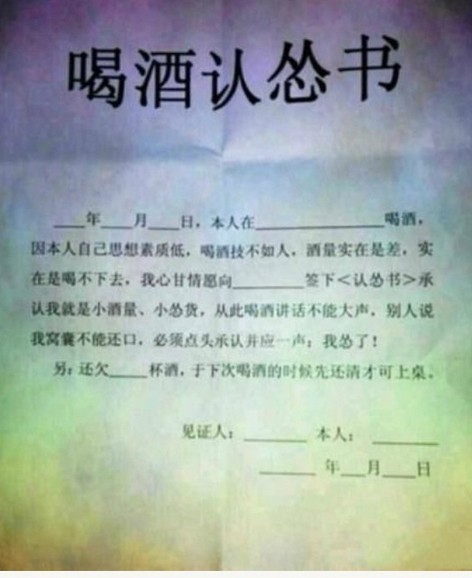 喝酒认怂书
___年___月___日，本人在____________喝酒，
因本人自己思想素质低，喝酒技不如人，酒量实在是差，实
在是喝不下去，我心甘情愿向_______签下<认怂书>承
认我就是小酒量、小怂货，从此喝酒讲话不能大声，别人说
我窝囊不能还口，必须点头承认并应一声：我怂了！
另：还欠____杯酒，于下次喝酒的时候先还清才可上桌。
见证人：______ 本人： ______
_____ 年___月___日